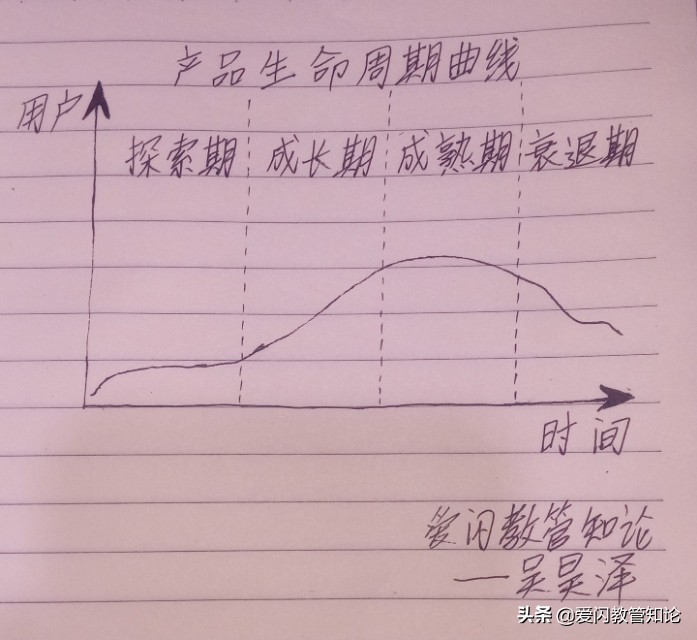 产品生命周期曲线
用户
探索期 成长期 成熟期 衰退期
时间
爱闪教管知论
—吴昊泽
头条 @爱闪教管知论